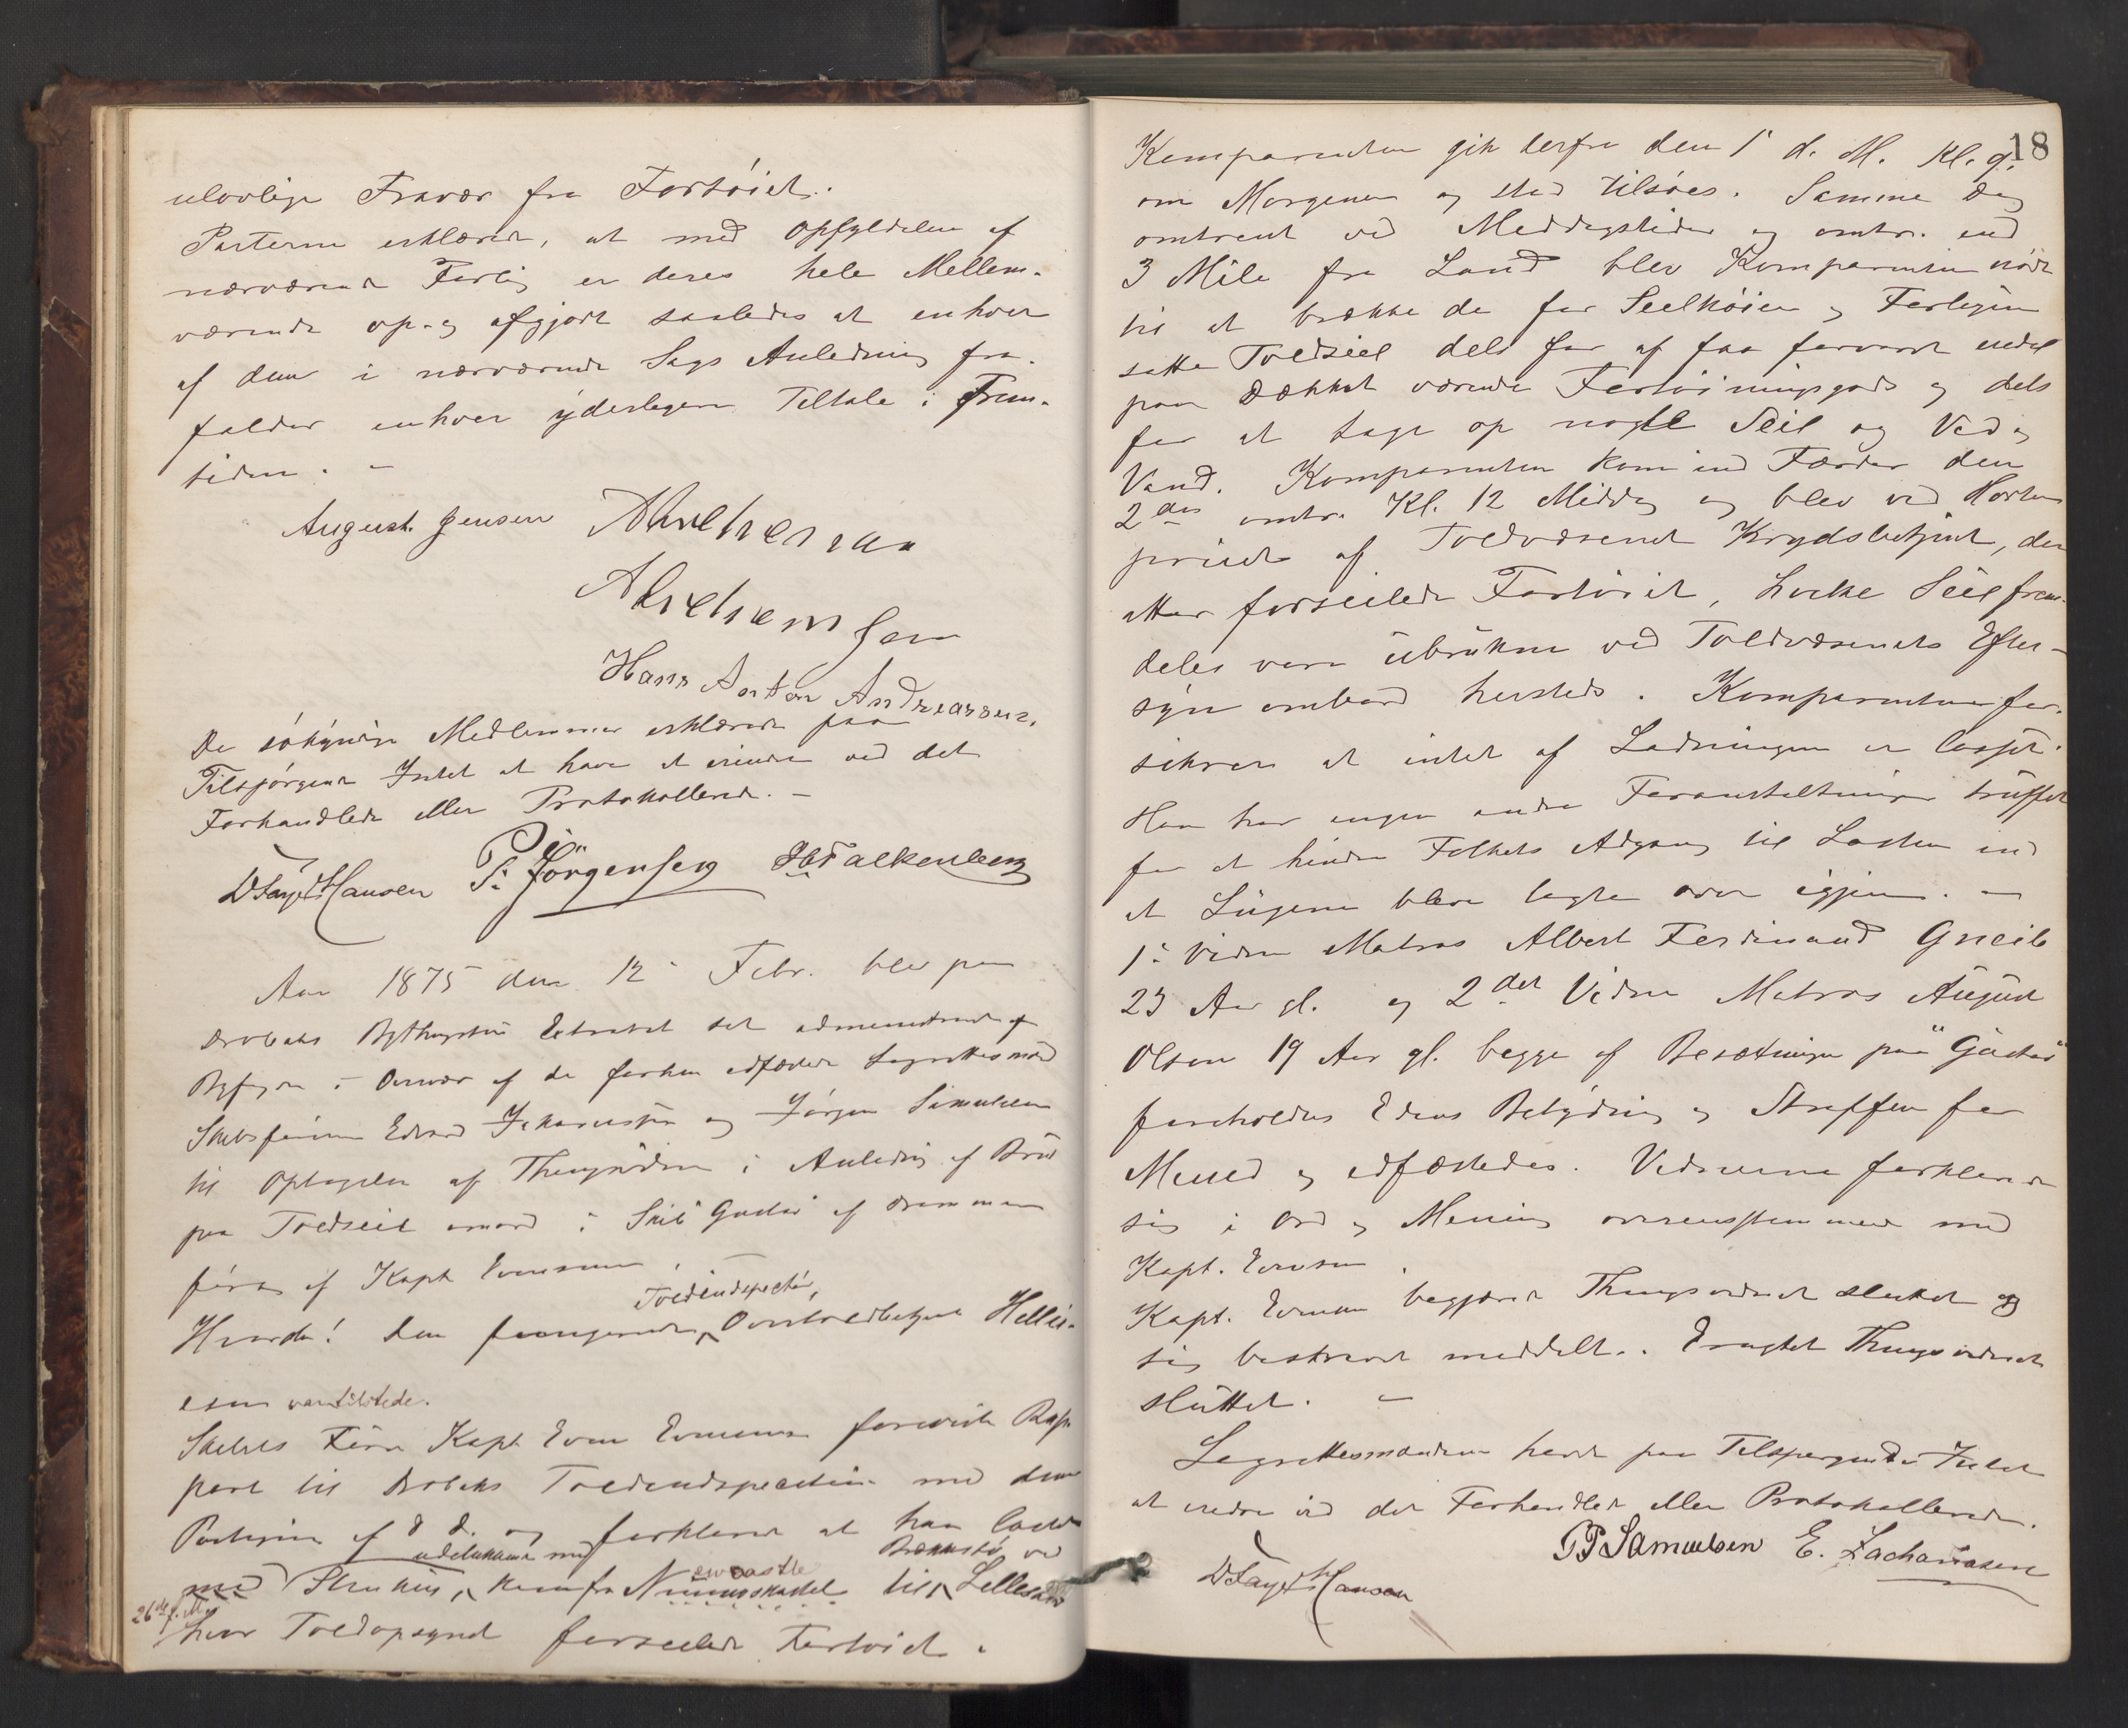 ulovlige Fravær fra Fartöiet.
Parterne erklærede, at med Opfyldelsen af
nærværende Forlig er deres hele Mellem-
værende op- og afgjort saaledes at enhver
af dem i nærværende Sags Anledning fra-
falder enhver yderligere Tiltale i Frem-
tiden. -
August Jensen
Hans Anton Andreassen.
De sökyndige Medlemmer erklærede paa
Tilspörgende Intet at have at erindre ved det
Forhandlede eller Protokollerede. -
DFayeHansen P. Jörgensen HFalkenberg
Aar 1875 den 12 Febr. blev paa
Dröbaks Bythingstue Extraret sat administreret af
Byfogden i Overvær af de forhen edfæstede Lagrettesmænd
Skibsförerne Edvard Zachariassen og Jörgen Samuelsen
til Optagelse af Thingsvidne i Anledning af Brud
paa Toldseil ombord i Skib "Gustav" af Drammen
föres af Kapt. Evensen.
Toldinspectör,
Hvorda! den fungerende Overtoldbetjent Helli-
esen var tilstede.
Skibets Förer Kapt. Even Evensen foreviste Rap-
port til Dröbaks Toldinspection med dennes
Paategning af d. d. og forklarede at han lastet
udelukkende med
med Stenkul, kom fra Newcastle til Brekkestö ved Lillesand
26de f. M.
hvor Toldopsynet forseilede Fartöiet.
18
Komparenten gik derfra den 1 d. M. Kl. 9
om Morgenen og stod tilsöes. Samme Dag
omtrent ved Middagstider og omtr. end
3 Mile fra Land blev Komparenten nödt
til at brække de for Seilköien og Forlugen
satte Toldseil dels for at faa forvaret endel
paa Dækket værende Fortöiningsgods og dels
for at tage op nogle Seil og Ved og
Vand. Komparenten kom ind Færder den
2den omtr. Kl. 12 Middag og blev ved Horten
priiet af Toldvæsenets Krydsbetjent, der
atter forseilede Fartöiet, hvilke Seil frem-
deles vare ubrukne ved Toldvæsenets Efter-
syn ombord hersteds. Komparenten for-
sikrer at intet af Ladningen er losset.
Han har ingen andre Foranstaltninger truffet
for at hindre Folkets Adgang til Lasten end
at Lugerne bleve lagte over igjen. -
1. Vidne Matros Albert Ferdinand Gneib
23 Aar gl. og 2det Vidne Matros August
Olsen 19 Aar gl. begge af Besætningen paa "Gustav"
foreholdtes Edens Betydning og Straffen for
Meened og edfæstedes. Vidnerne forklarede
sig i Ord og Mening overensstemmende med
Kapt. Evensen.
Kapt. Evensen begjærede Thingsvidnet sluttet og
sig beskrevet meddelt. Eragtet Thingsvidnet
sluttet. -
Lagrettesmændene havde paa Tilspörgende Intet
at erindre ved det Forhandlede eller Protokollerede.
DFayeHansen JPSamuelsen E. Zachariasen